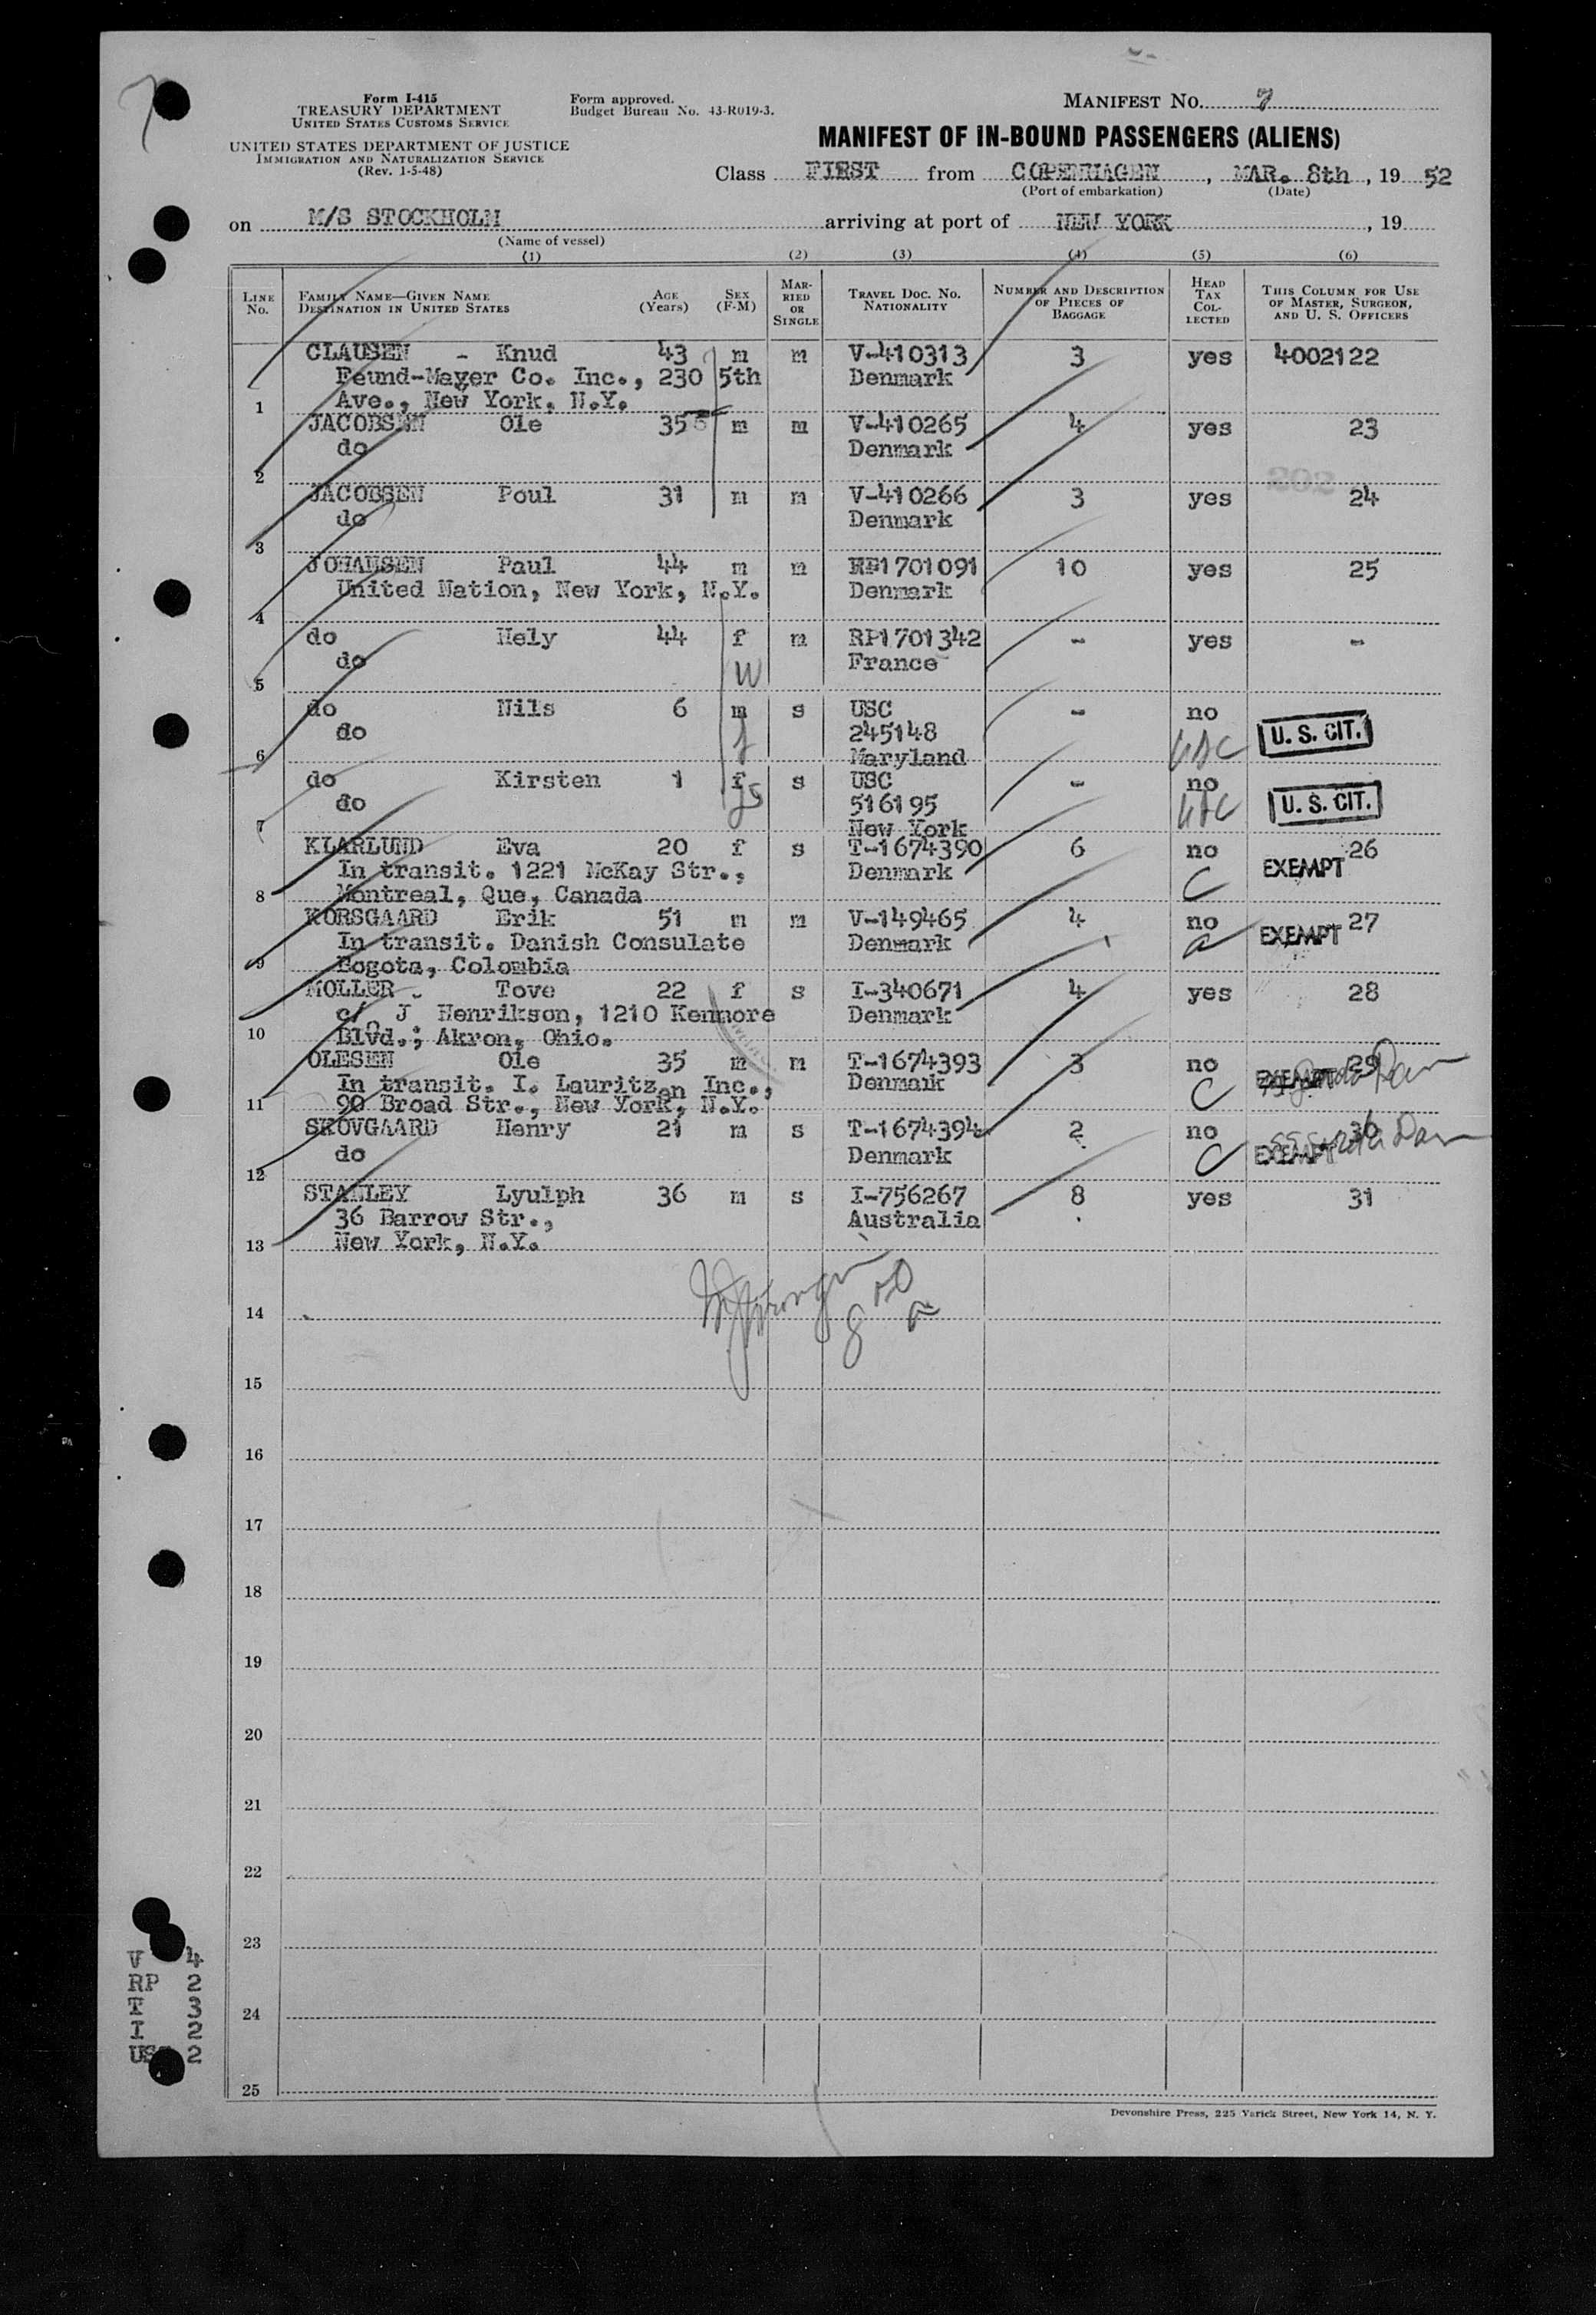 7
Form I-415
TREASURY DEPARTMENT
UNITED STATES CUSTOMS SERVICE
UNITED STATES DEPARTMENT OF JUSTICE
IMMIGRATION AND NATURALIZATION SERVICE
(Rev. 1-5-48)
Form approved.
Budget Bureau No. 43-R019-3.
MANIFEST NO. 7
MANIFEST OF IN-BOUND PASSENGERS (ALIENS)
Class FIRST from COPENHAGEN, MAR. 8th, 19 52
(Port of embarkation) (Date)
on M/S STOCKHOLM arriving at port of NEW YORK, 19
(Name of vessel)
(1) (2) (3) (4) (5) (6)
LINE No. FAMILY NAME—GIVEN NAME DESTINATION IN UNITED STATES AGE (Years) SEX (F-M) MARRIED OR SINGLE TRAVEL DOC. NO. NATIONALITY NUMBER AND DESCRIPTION OF PIECES OF BAGGAGE HEAD TAX COLLECTED THIS COLUMN FOR USE OF MASTER, SURGEON, AND U. S. OFFICERS
CLAUSEN - Knud 43 m m V-410313 3 yes 4002122
Feund-Mayer Co. Inc., 230 5th Denmark
1 Ave., New York, N.Y.
JACOBSEN Ole 35 m m V-410265 4 yes 23
do Denmark
2
202
JACOBSEN Poul 31 m m V-410266 3 yes 24
do Denmark
3
JOHANSEN Paul 44 m m RP1701091 10 yes 25
United Nation, New York, N.Y. Denmark
4
do Nely 44 f m RP1701342 - yes -
do France
5 W
do Nils 6 m s USC - no
do 245148 U. S. CIT.
6 Maryland USC
do Kirsten 1 f s USC - no
do 516195 USC U. S. CIT.
7 New York
KLARLUND Eva 20 f s T-1674390 6 no 26
In transit. 1221 McKay Str., Denmark EXEMPT
8 Montreal, Que, Canada C
KORSGAARD Erik 51 m m V-149465 4 no 27
In transit. Danish Consulate Denmark EXEMPT
9 Bogota, Colombia
MOLLER - Tove 22 f s I-340671 4 yes 28
c/o J Henrikson, 1210 Kenmore Denmark
10 Blvd.; Akron, Ohio.
OLESEN Ole 35 m m T-1674393 3 no 29
In transit. I. Lauritzen Inc., Denmark EXEMPT
11 90 Broad Str., New York, N.Y. C
SKOVGAARD Henry 21 m s T-1674394 2 no 30
do Denmark EXEMPT
12 C
STANLEY Lyulph 36 m s I-756267 8 yes 31
36 Barrow Str., Australia
13 New York, N.Y.
14
15
16
17
18
19
20
21
22
23
24
25
V 4
RP 2
T 3
I 2
US 2
Devonshire Press, 225 Varick Street, New York 14, N. Y.